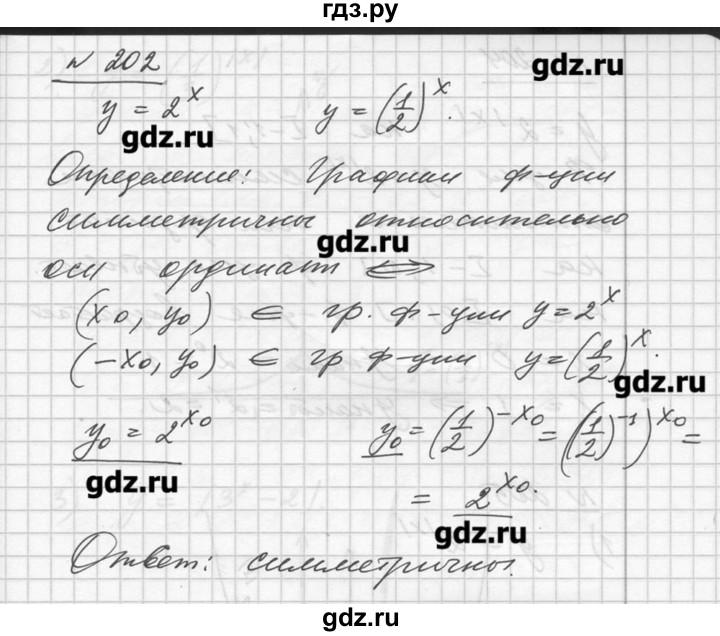 гдз.ру
№ 202
gdz.ru
y = 2^x y = (1/2)^x.
gdz.ru
Определение: Графики ф-ции
симметричны относительно
gdz.ru
оси ординат ⟺
(x₀, y₀) ∈ гр. ф-ции y = 2^x
(−x₀, y₀) ∈ гр ф-ции y = (1/2)^x.
gdz.ru
y₀ = 2^x₀ y₀ = (1/2)^−x₀ = ((1/2)^−1)^x₀ =
gdz.ru
= 2^x₀.
gdz.ru
Ответ: симметричны.
gdz.ru